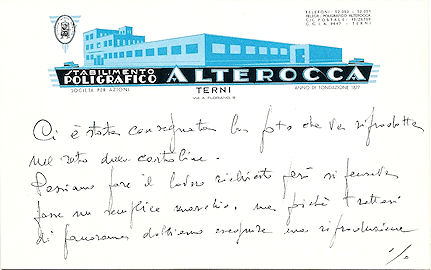 TELEFONI: 52.050 - 52.051
TELEGR.: POLIGRAFICO ALTEROCCA
STABILIMENTO
POLIGRAFICO ALTEROCCA
SOCIETÀ PER AZIONI
TERNI
ANNO DI FONDAZIONE 1877
Ci è stata consegnata la foto che va riprodotta
nel retro della cartolina.
Possiamo fare il lavoro richiesto però si pensava
fosse un semplice marchio, ma poichè trattasi
di panorama dobbiamo eseguire una riproduzione
./.